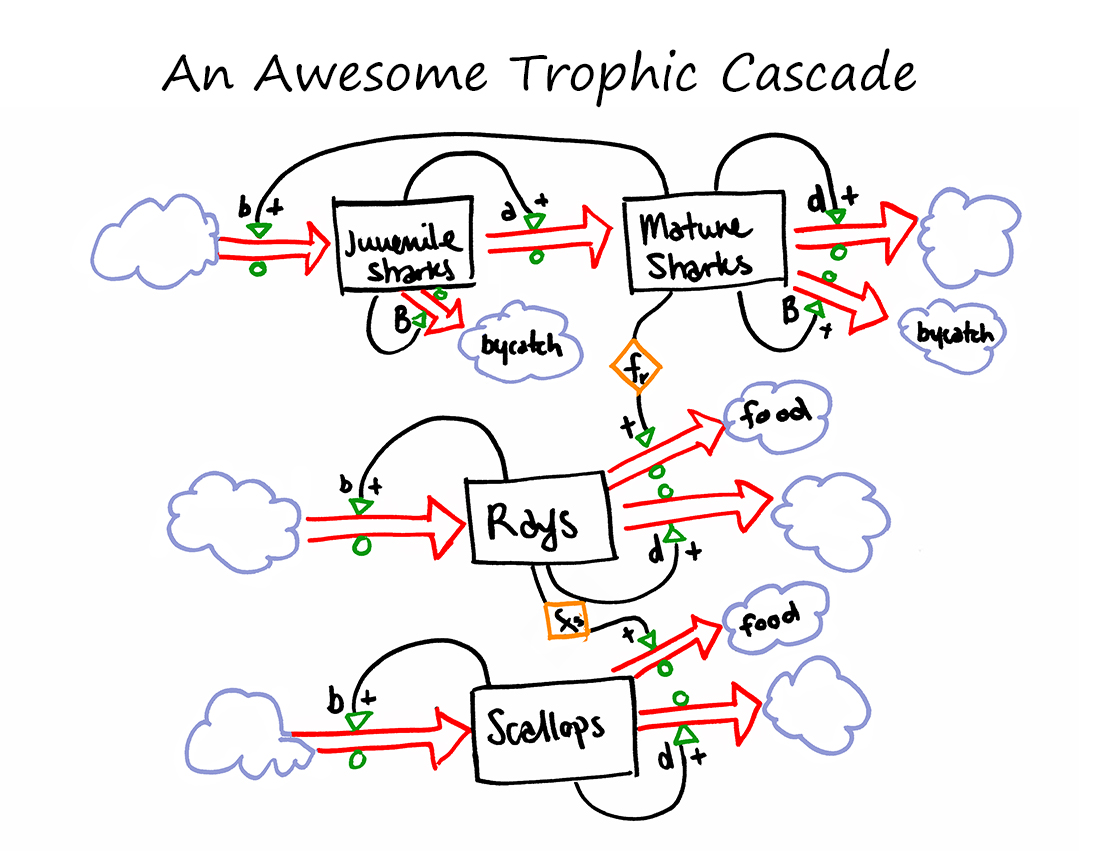 An Awesome Trophic Cascade
b +
a +
d +
Juvenile
sharks
Mature
Sharks
B
B
+
bycatch
bycatch
fr
+
food
b +
Rays
d +
fs
+
food
b +
Scallops
d +